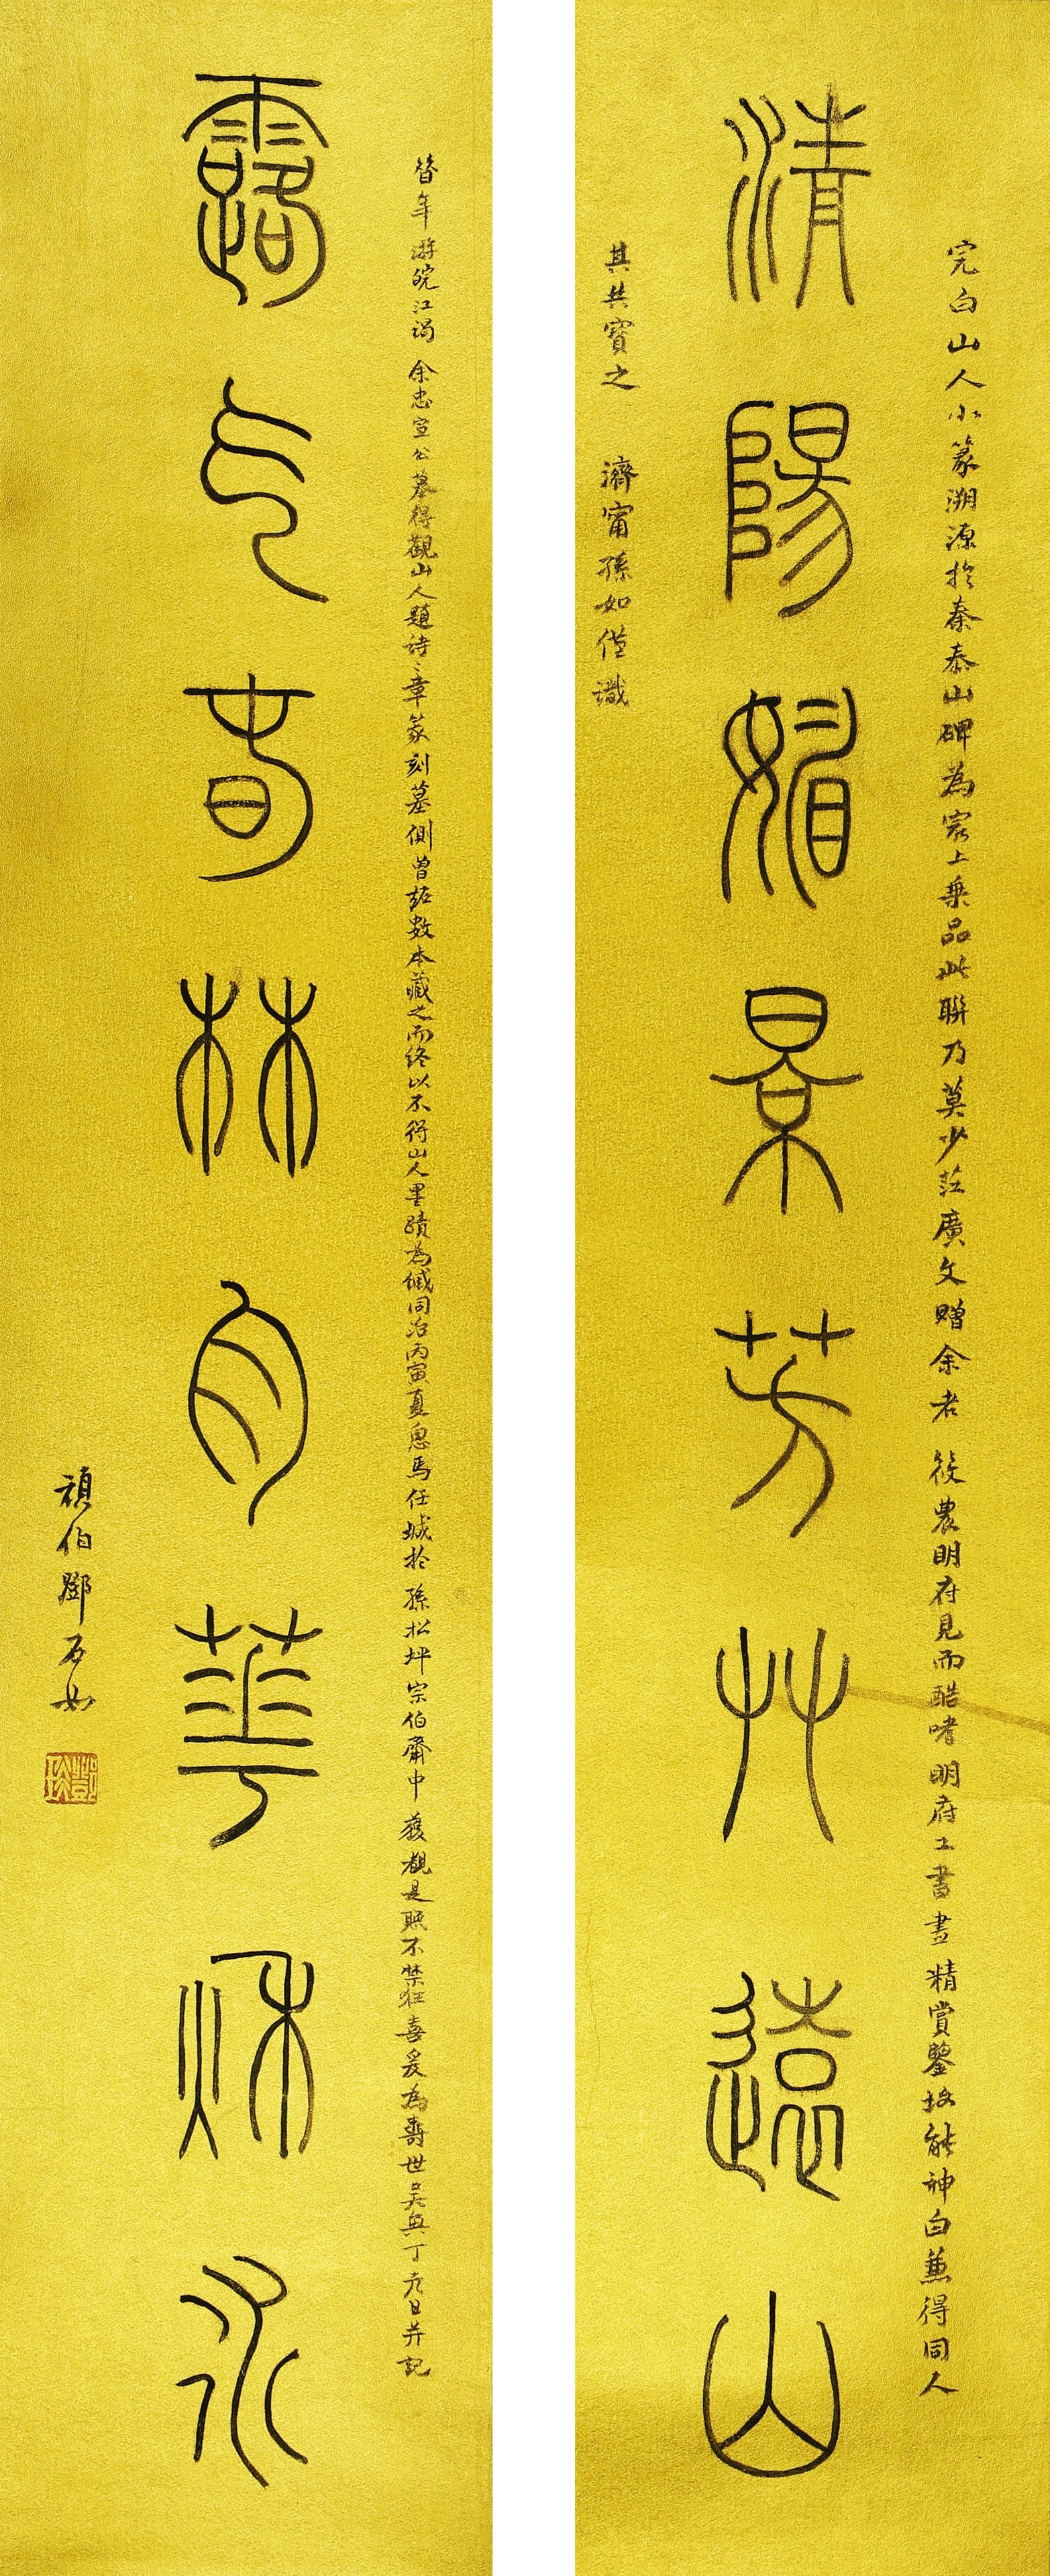 完白山人小篆溯源於秦泰山碑為家上乗品此聯乃莫少莊廣文贈余者 筱農明府見而酷嗜 明府工書畫精賞鑒故能神白兼得同人
清陽媚景芳艸遠山
其共寶之 濟甯孫如僅識
昔年游皖江謁 余忠宣公墓得觀山人題詩〻章篆刻墓側曾拓數本藏之而終以不得山人墨蹟為憾同治丙寅夏息馬任城於 孫松坪宗伯齋中 獲觀是聯不禁狂喜爰為壽世吳興丁并記
露气春林月華秌水
頑伯鄧石如
鄧琰